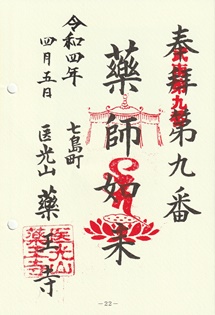 奉拝
第九番
薬師如来
七島町
医光山 薬王寺
令和四年
四月五日
医光山
薬王寺
-22-